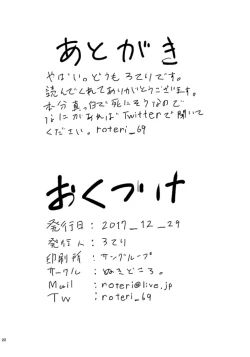 あとがき
やばいっどうもろてりです。
読んでくれてありがとうございます。
本分真っ白で死にそうなので
なにかあればTwitterで聞いて
ください。roteri_69
おくづけ
発行日：2017_12_29
発行人：ろてり
印刷所：サングループ
サークル：ぬきどころ。
Mail：roteri@live.jp
Tw：roteri_69